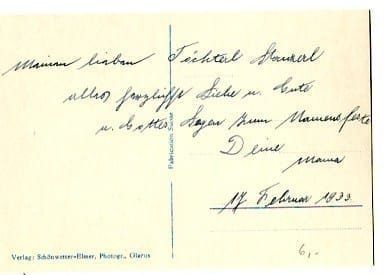 Meinem lieben Töchterl
alles herzlichste Liebe u. Gute
u. Gottes Segen zum Namensfeste
Deine
Mama
17 Februar 1933.
Fabrication Suisse
Verlag: Schönwetter-Elmer, Photogr., Glarus
6,-